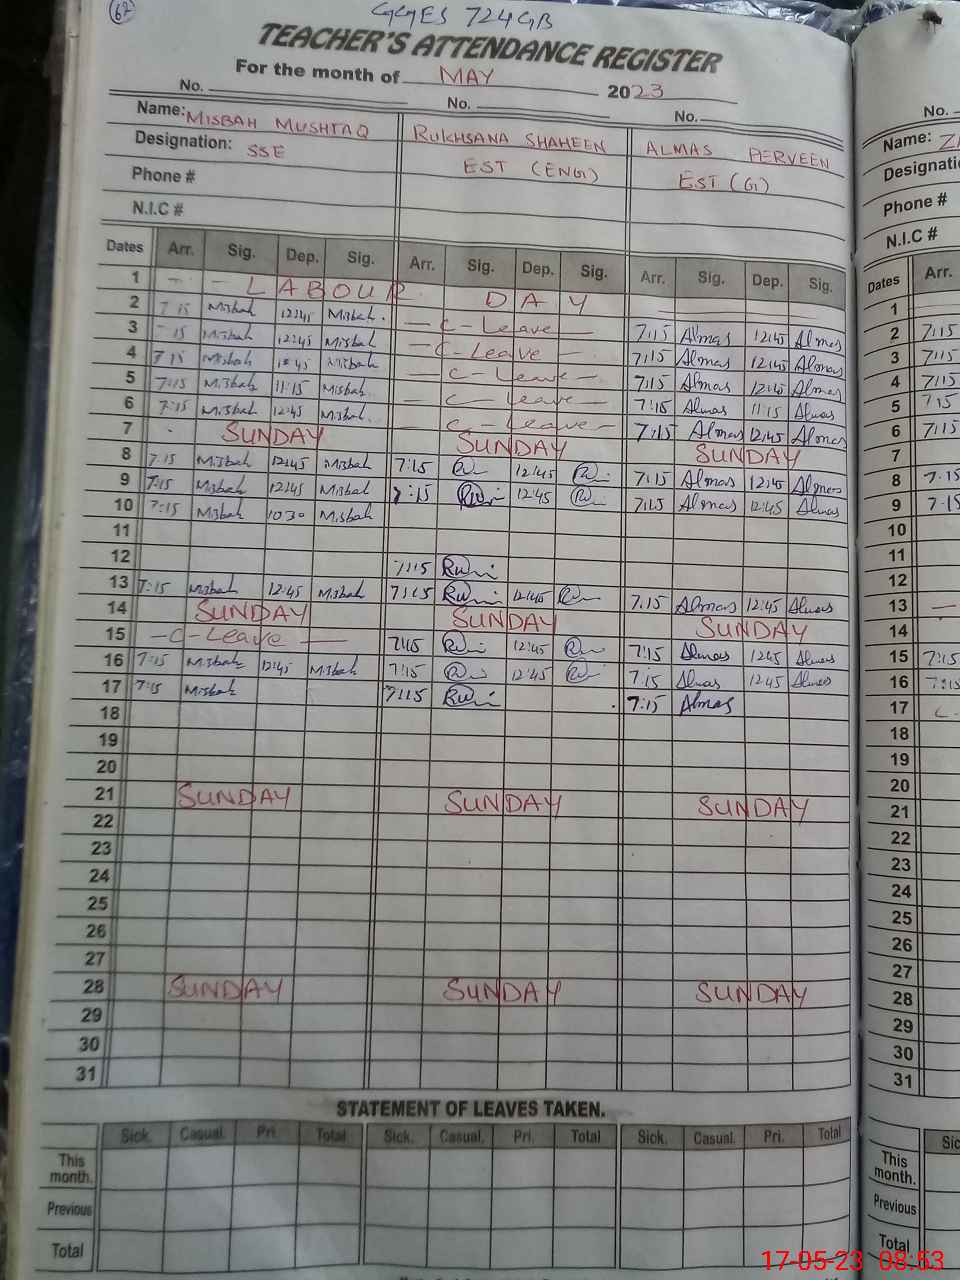 67
GGES 724GB
TEACHER'S ATTENDANCE REGISTER
For the month of MAY 2023
No. No. No.
Name: MISBAH MUSHTAQ RUKHSANA SHAHEEN ALMAS PERVEEN
Designation: SSE EST (ENG) EST (G)
Phone #
N.I.C #
Dates Arr. Sig. Dep. Sig. Arr. Sig. Dep. Sig. Arr. Sig. Dep. Sig.
1 LABOUR DAY
2 7:15 Misbah 12:45 Misbah. C-Leave 7:15 Almas 12:45 Almas
3 :15 Misbah 12:45 Misbah C-Leave 7:15 Almas 12:45 Almas
4 7:15 Misbah 12:45 Misbah C-Leave 7:15 Almas 12:45 Almas
5 7:15 Misbah 11:15 Misbah C-Leave 7:15 Almas 11:15 Almas
6 7:15 Misbah 12:45 Misbah. C-Leave 7:15 Almas 12:45 Almas
7 SUNDAY SUNDAY SUNDAY
8 7:15 Misbah 12:45 Misbah 7:15 12:45 7:15 Almas 12:45 Almas
9 7:15 Misbah 12:45 Misbah 7:15 12:45 7:15 Almas 12:45 Almas
10 7:15 Misbah 10:30 Misbah
11
12 7:15
13 7:15 Misbah 12:45 Misbah 7:15 12:45 7:15 Almas 12:45 Almas
14 SUNDAY SUNDAY SUNDAY
15 C-Leave 7:15 12:45 7:15 Almas 12:45 Almas
16 7:15 Misbah 12:45 Misbah 7:15 12:45 7:15 Almas 12:45 Almas
17 7:15 Misbah 7:15 7:15 Almas
18
19
20
21 SUNDAY SUNDAY SUNDAY
22
23
24
25
26
27
28 SUNDAY SUNDAY SUNDAY
29
30
31
STATEMENT OF LEAVES TAKEN.
Sick. Casual. Pri. Total Sick. Casual. Pri. Total Sick. Casual. Pri. Total
This month.
Previous
Total
No.
Name:
Phone #
N.I.C #
Dates Arr.
1
2 7:15
3 7:15
4 7:15
5 7:15
6 7:15
7
8 7:15
9 7:15
10
11
12
13
14
15 7:15
16 7:15
17
18
19
20
21
22
23
24
25
26
27
28
29
30
31
This month.
Previous
Total
17-05-23 08:53